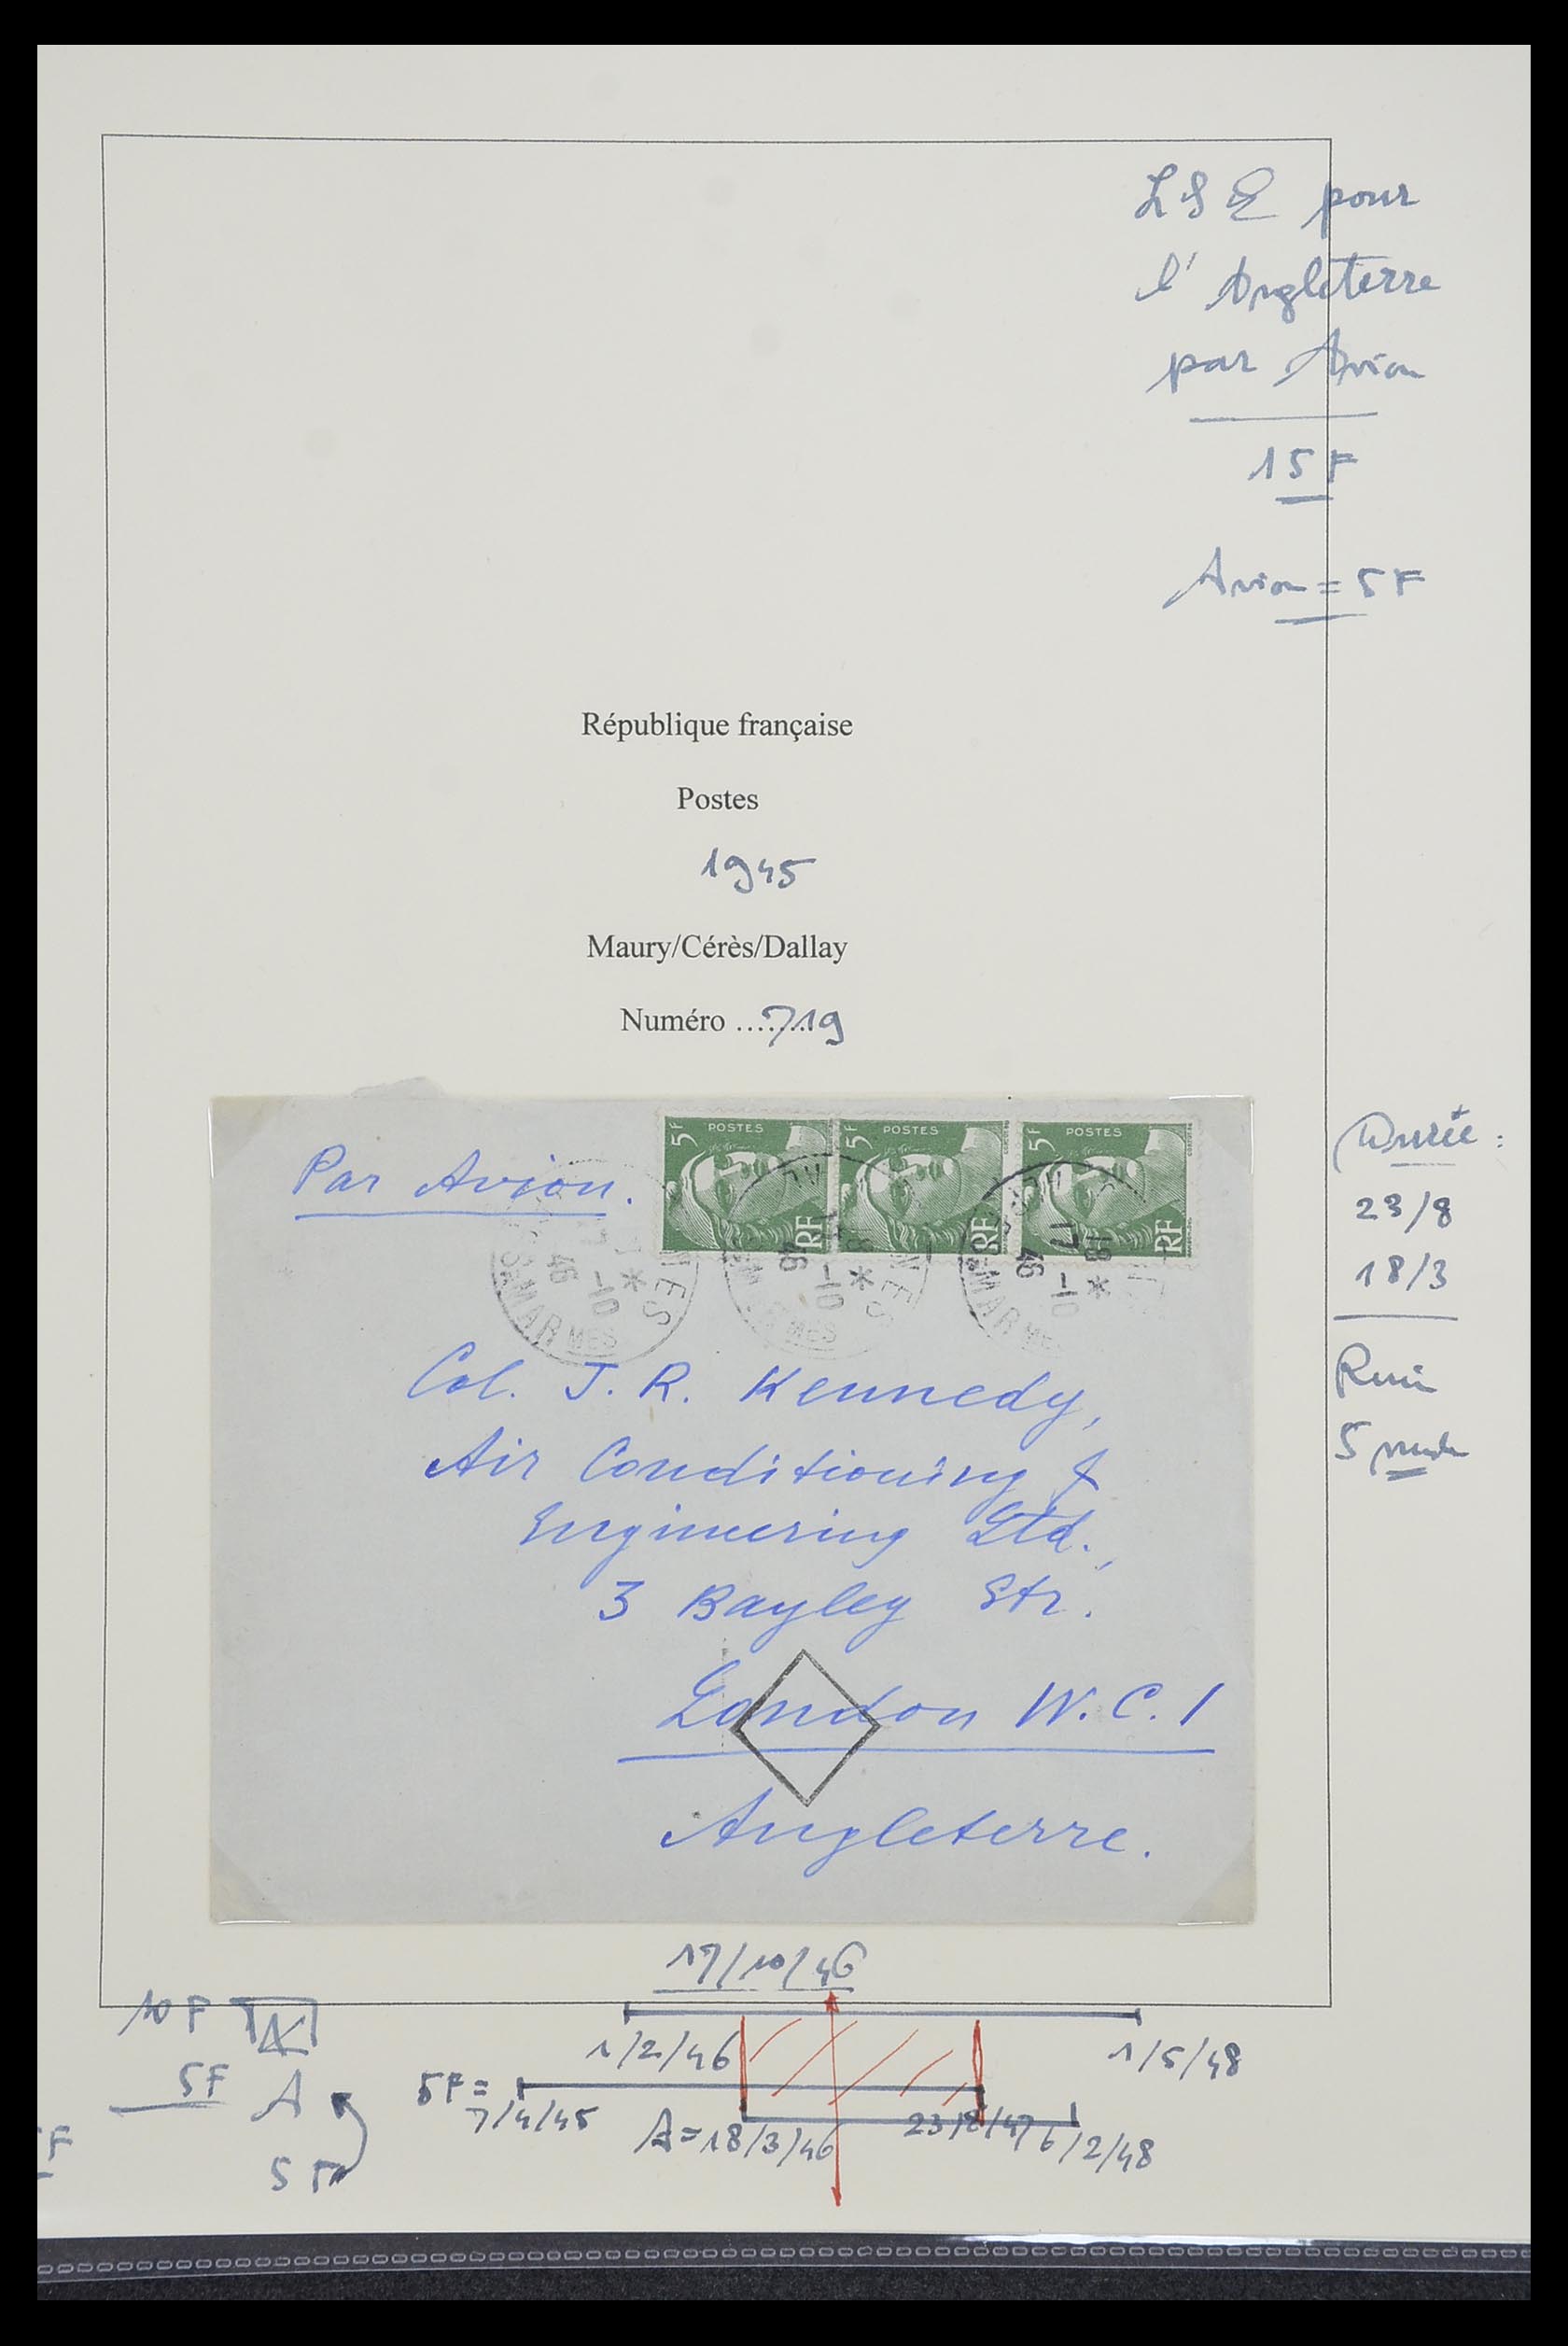 LSE pour
l'Angleterre
par Avion
15F
Avion = 5F
République française
Postes
1945
Maury/Cérès/Dallay
Numéro ........719
5F POSTES RF
5F POSTES RF
5F POSTES RF
Par Avion.
18 *
17 -10
46
S. ET MARNE
Col. J. R. Kennedy,
Air Conditioning &
Engineering Ltd.,
3 Bayley Str.
London W.C.1
Angleterre.
Durée :
23/8
18/3
5
17/10/46
10F
5F A
5F
1/2/46
1/5/48
5F =
7/4/45
A = 18/3/46
23/8/47
6/2/48